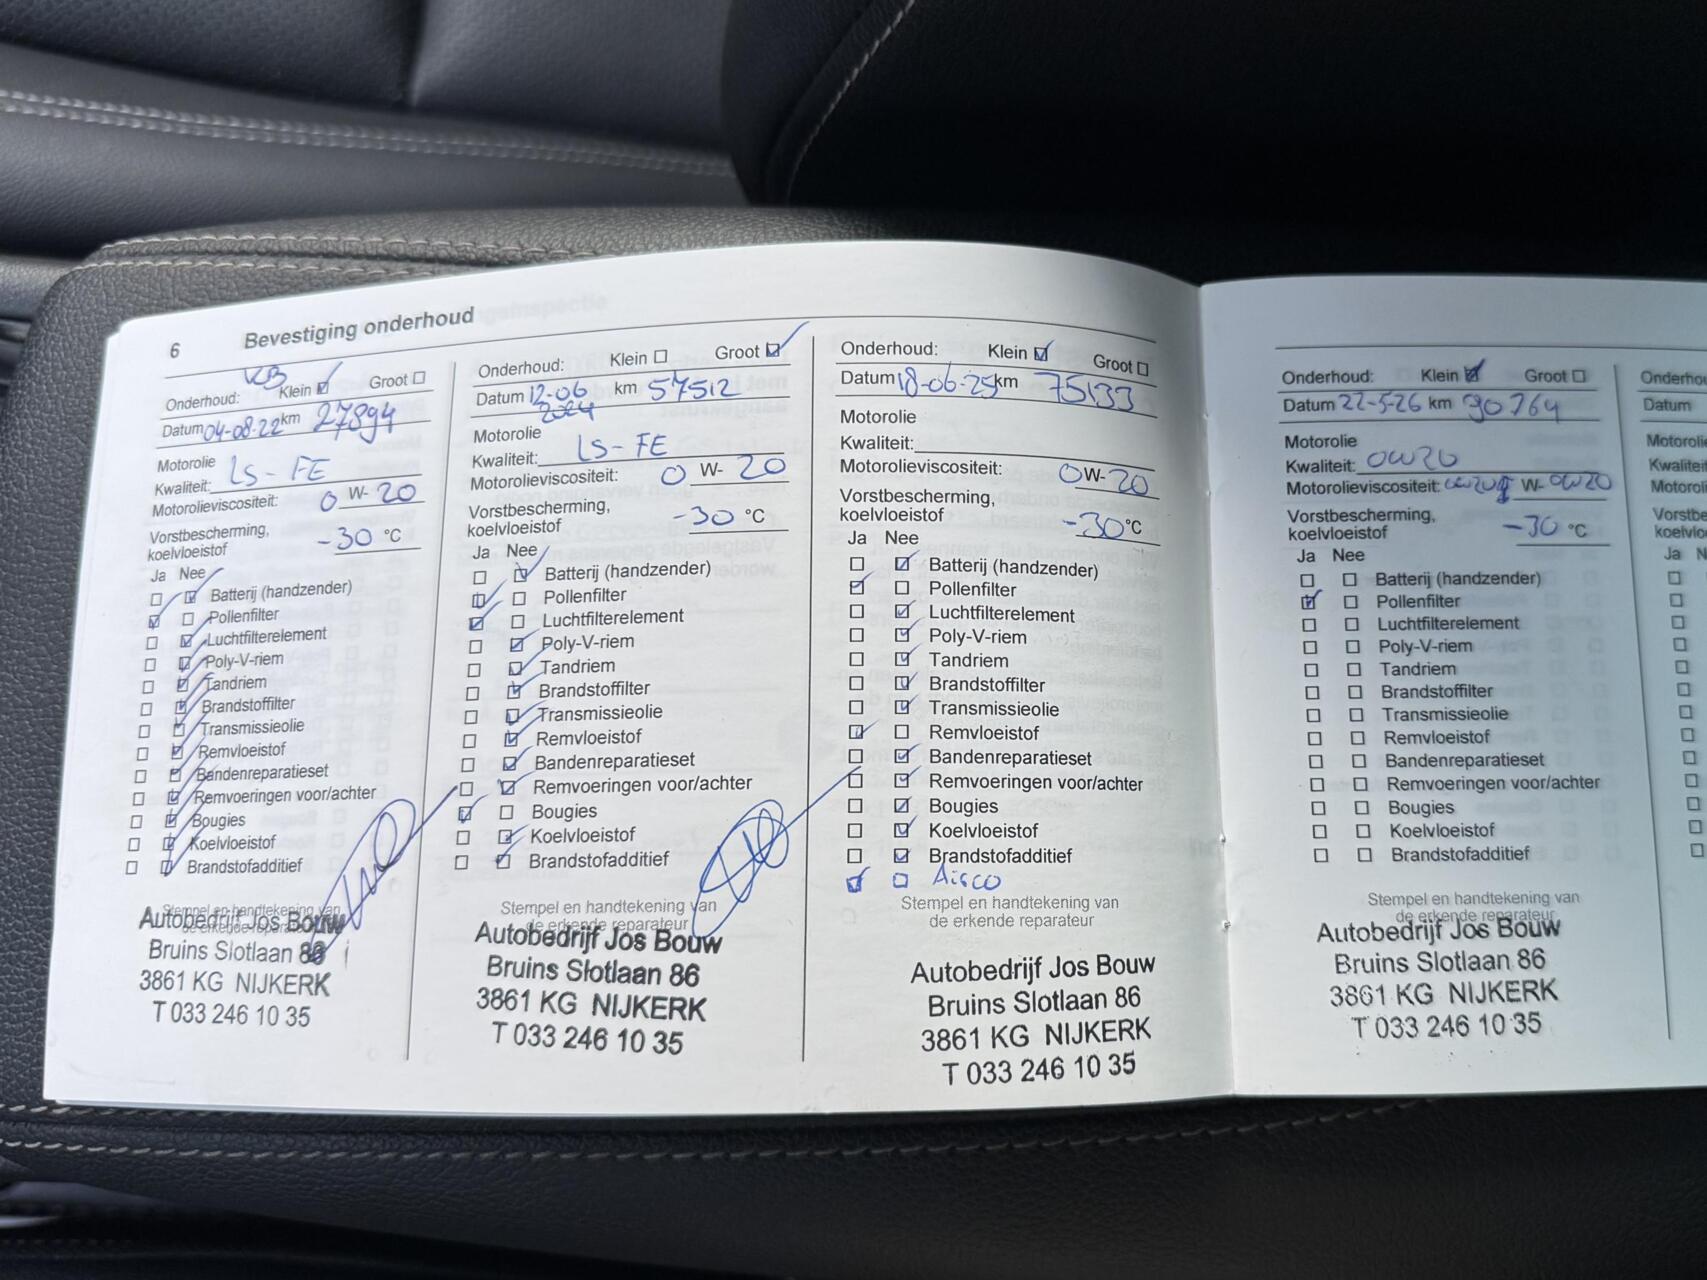 6 Bevestiging onderhoud
Onderhoud: Klein Groot
Datum 04-08-22 km 27894
Motorolie
Kwaliteit: LS-FE
Motorolieviscositeit: 0 W- 20
Vorstbescherming,
koelvloeistof -30 °C
Ja Nee
Batterij (handzender)
Pollenfilter
Luchtfilterelement
Poly-V-riem
Tandriem
Brandstoffilter
Transmissieolie
Remvloeistof
Bandenreparatieset
Remvoeringen voor/achter
Bougies
Koelvloeistof
Brandstofadditief
Stempel en handtekening van
de erkende reparateur
Autobedrijf Jos Bouw
Bruins Slotlaan 86
3861 KG NIJKERK
T 033 246 10 35
Onderhoud: Klein Groot
Datum 12-06 km 57512
2024
Motorolie
Kwaliteit: LS-FE
Motorolieviscositeit: 0 W- 20
Vorstbescherming,
koelvloeistof -30 °C
Ja Nee
Batterij (handzender)
Pollenfilter
Luchtfilterelement
Poly-V-riem
Tandriem
Brandstoffilter
Transmissieolie
Remvloeistof
Bandenreparatieset
Remvoeringen voor/achter
Bougies
Koelvloeistof
Brandstofadditief
Stempel en handtekening van
de erkende reparateur
Autobedrijf Jos Bouw
Bruins Slotlaan 86
3861 KG NIJKERK
T 033 246 10 35
Onderhoud: Klein Groot
Datum 18-06-25 km 75133
Motorolie
Kwaliteit:
Motorolieviscositeit: 0W- 20
Vorstbescherming,
koelvloeistof -30°C
Ja Nee
Batterij (handzender)
Pollenfilter
Luchtfilterelement
Poly-V-riem
Tandriem
Brandstoffilter
Transmissieolie
Remvloeistof
Bandenreparatieset
Remvoeringen voor/achter
Bougies
Koelvloeistof
Brandstofadditief
Airco
Stempel en handtekening van
de erkende reparateur
Autobedrijf Jos Bouw
Bruins Slotlaan 86
3861 KG NIJKERK
T 033 246 10 35
Onderhoud: Klein Groot
Datum 22-5-26 km 90764
Motorolie
Kwaliteit: 0W20
Motorolieviscositeit: 0W20 W- 0W20
Vorstbescherming,
koelvloeistof -30 °C
Ja Nee
Batterij (handzender)
Pollenfilter
Luchtfilterelement
Poly-V-riem
Tandriem
Brandstoffilter
Transmissieolie
Remvloeistof
Bandenreparatieset
Remvoeringen voor/achter
Bougies
Koelvloeistof
Brandstofadditief
Stempel en handtekening van
de erkende reparateur
Autobedrijf Jos Bouw
Bruins Slotlaan 86
3861 KG NIJKERK
T 033 246 10 35
Datum
Ja